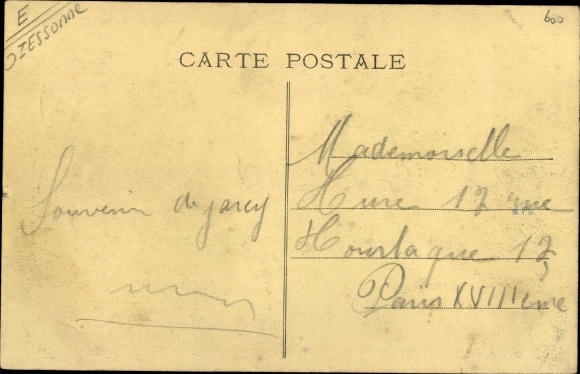 E
ESSONNE
600
CARTE POSTALE
Souvenir de jarcy
Mademoiselle
Hure 17 rue
Hourlaque 17
Paris XVIIIème